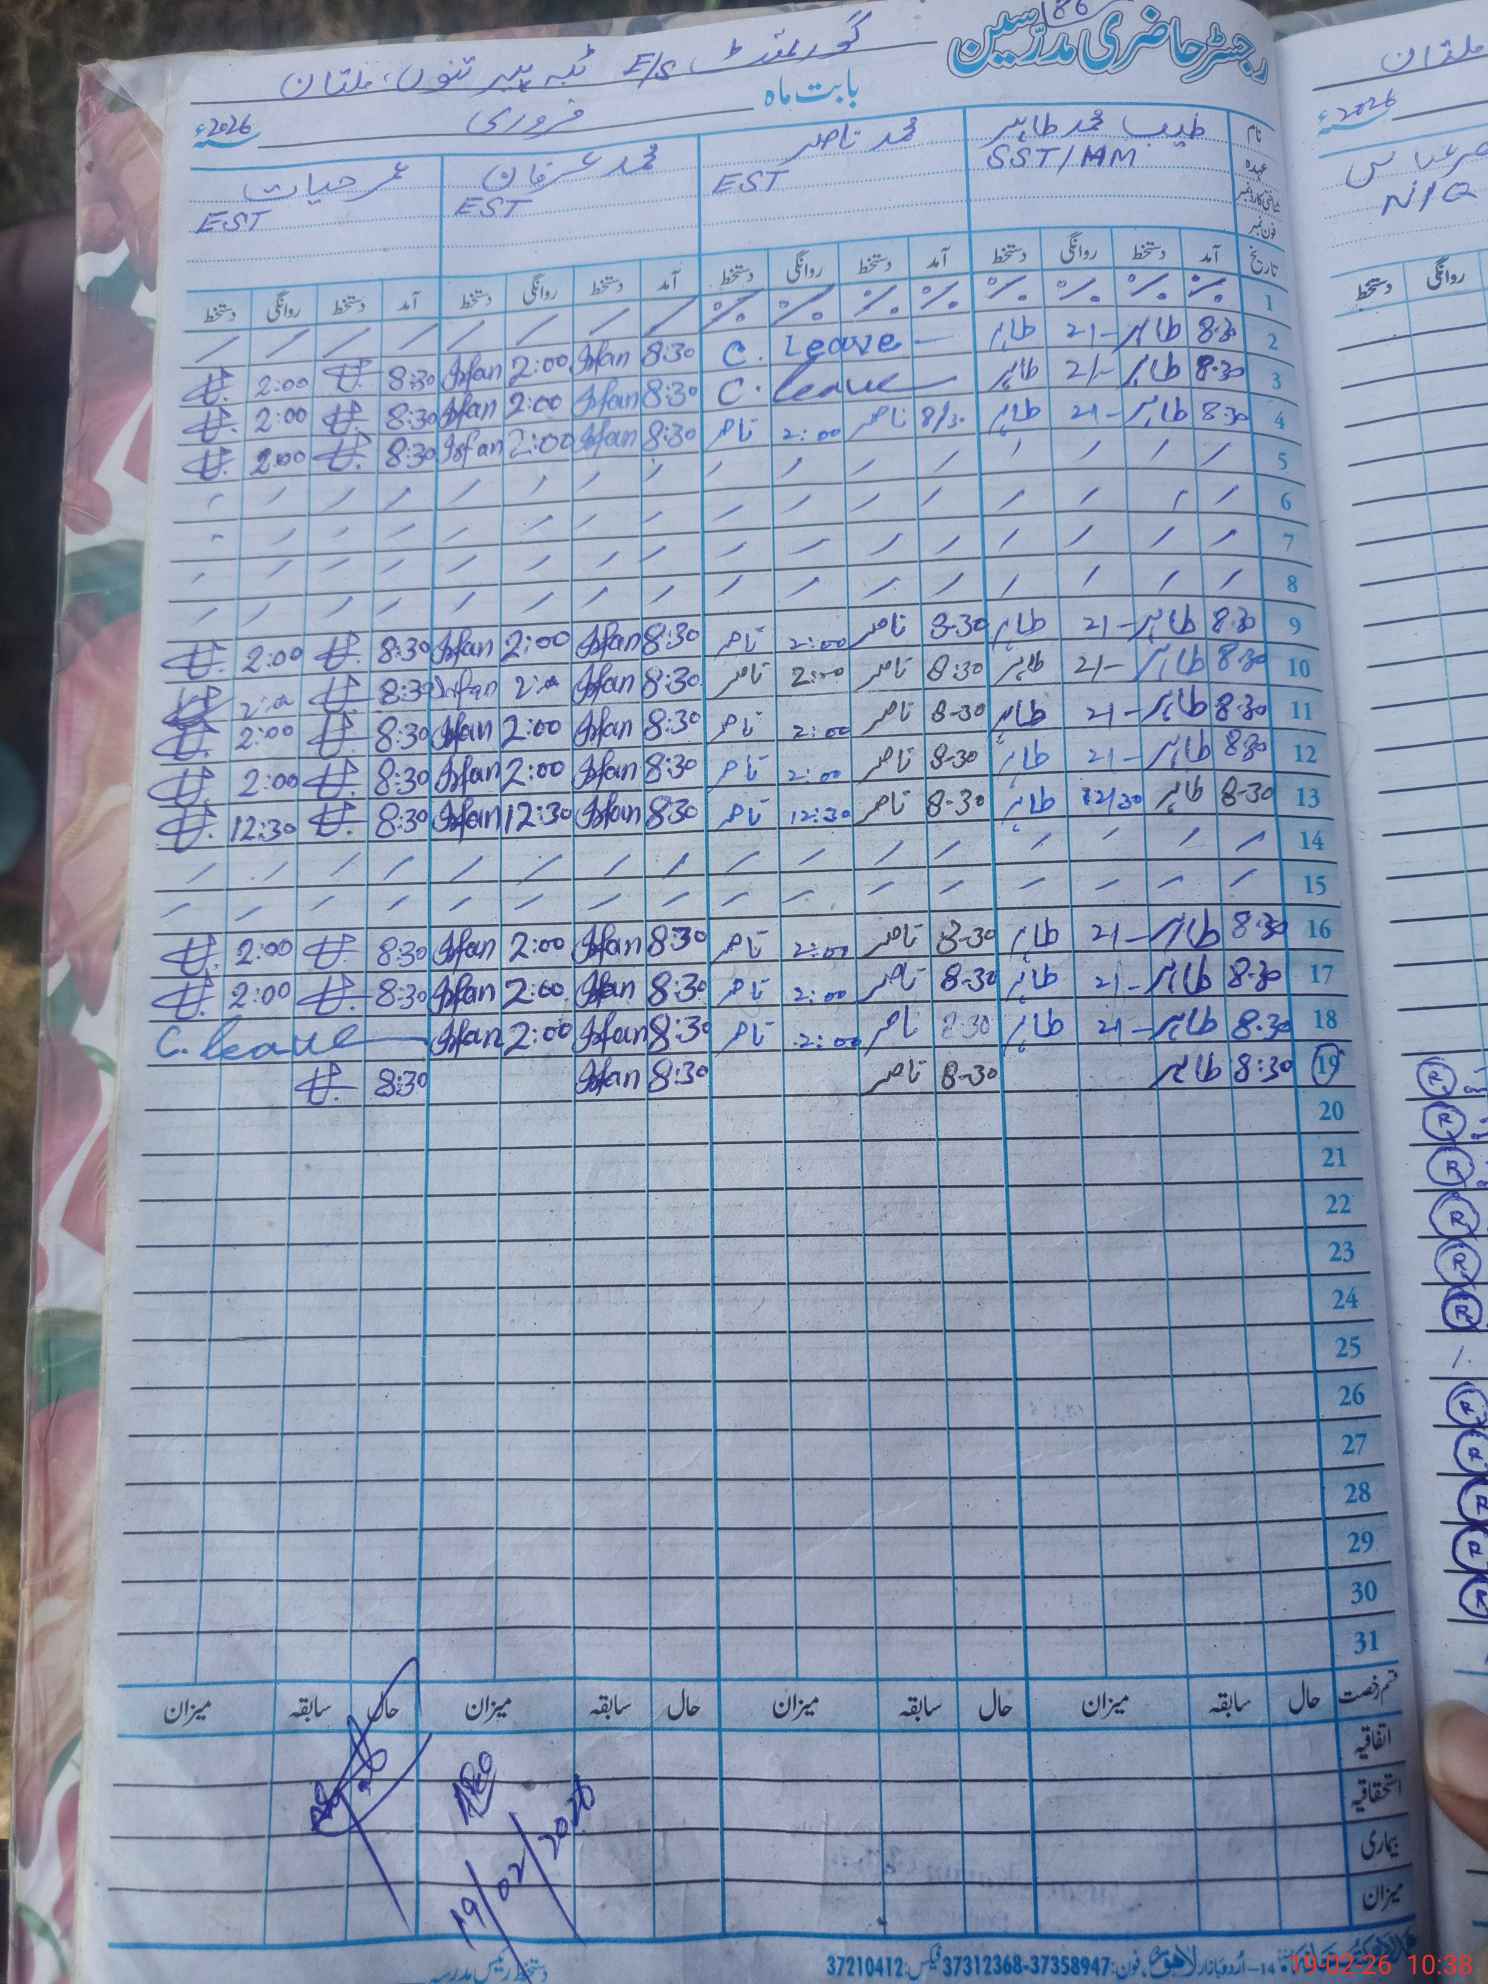 186
رجسٹر حاضری مدرسین گورنمنٹ E/S ٹبہ پیر تنوں، ملتان
بابت ماہ فروری 2026ء
نام طیب محمد طاہر محمد ناصر محمد عرفان عمر حیات
عہدہ SST/HM EST EST EST
شناختی کارڈ نمبر
فون نمبر
تاریخ آمد دستخط روانگی دستخط آمد دستخط روانگی دستخط آمد دستخط روانگی دستخط آمد دستخط روانگی دستخط
1
2 8:30 طاہر 2/- طاہر C. Leave 8:30 Irfan 2:00 Irfan 8:30 2:00
3 8:30 طاہر 2/- طاہر C. leave 8:30 Irfan 2:00 Irfan 8:30 2:00
4 8:30 طاہر 2/- طاہر 8/30 ناصر 2:00 ناصر 8:30 Irfan 2:00 Irfan 8:30 2:00
5
6
7
8
9 8:30 طاہر 2/- طاہر 8-30 ناصر 2:00 ناصر 8:30 Irfan 2:00 Irfan 8:30 2:00
10 8:30 طاہر 2/- طاہر 8-30 ناصر 2:00 ناصر 8:30 Irfan 2:00 Irfan 8:30 2:00
11 8:30 طاہر 2/- طاہر 8-30 ناصر 2:00 ناصر 8:30 Irfan 2:00 Irfan 8:30 2:00
12 8:30 طاہر 2/- طاہر 8-30 ناصر 2:00 ناصر 8:30 Irfan 2:00 Irfan 8:30 2:00
13 8-30 طاہر 12/30 طاہر 8-30 ناصر 12:30 ناصر 8:30 Irfan 12:30 Irfan 8:30 12:30
14
15
16 8:30 طاہر 2/- طاہر 8-30 ناصر 2:00 ناصر 8:30 Irfan 2:00 Irfan 8:30 2:00
17 8:30 طاہر 2/- طاہر 8-30 ناصر 2:00 ناصر 8:30 Irfan 2:00 Irfan 8:30 2:00
18 8:30 طاہر 2/- طاہر 8:30 ناصر 2:00 ناصر 8:30 Irfan 2:00 Irfan C. leave
19 8:30 طاہر 8-30 ناصر 8:30 Irfan 8:30
20
21
22
23
24
25
26
27
28
29
30
31
قسم رخصت حال سابقہ میزان حال سابقہ میزان حال سابقہ میزان حال سابقہ میزان
اتفاقیہ
استحقاقیہ
بیماری
میزان
19/02/2026
14-اُردو بازار لاہور فون: 37312368-37358947 فیکس: 37210412
دستخط رئیس مدرسہ
19-02-26 10:38
ملتان
2026ء
N/Q
روانگی دستخط
R
R
R
R
R
R
R
R
R
R
R